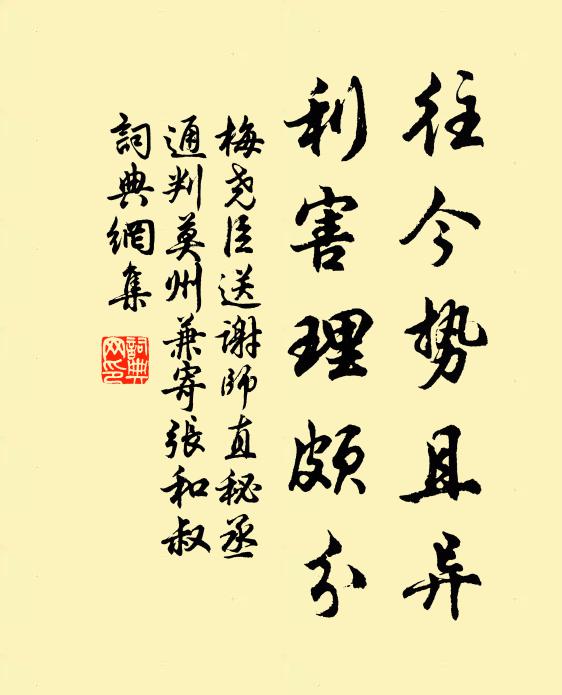 往今势且异
利害理颇分
梅尧臣送谢师直秘丞
通判莫州兼寄张和叔
词典網集
詞典網印